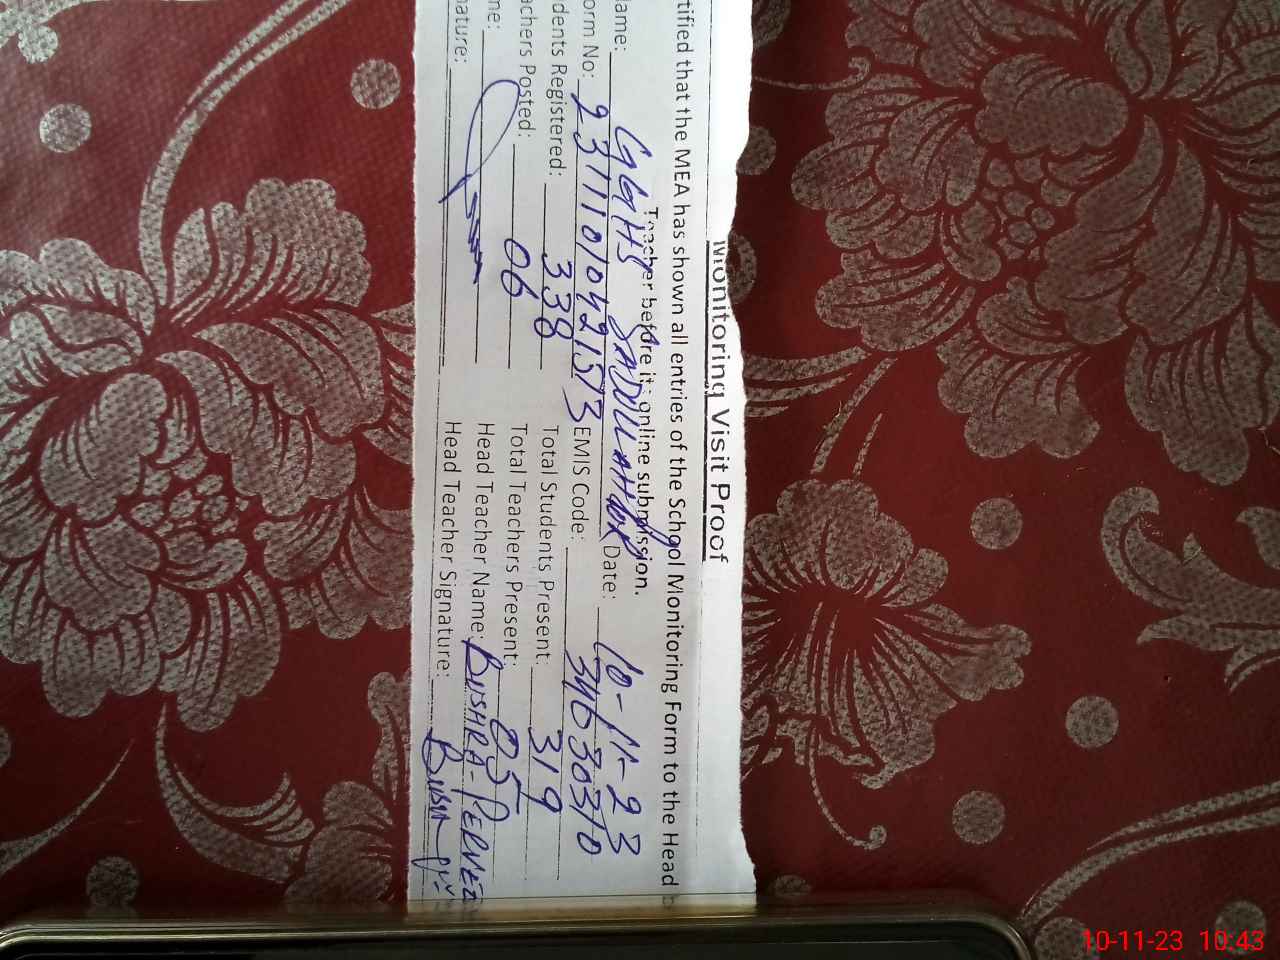 Monitoring Visit Proof
tified that the MEA has shown all entries of the School Monitoring Form to the Head
Teacher before it; online submission.
Name: GGHS SADDULAHPUR Date: 10-11-23
orm No: 23111010421513 EMIS Code: 34630310
dents Registered: 338 Total Students Present: 319
achers Posted: 06 Total Teachers Present: 05
me: Head Teacher Name: BUSHRA-PERVEZ
nature: Head Teacher Signature:
10-11-23 10:43